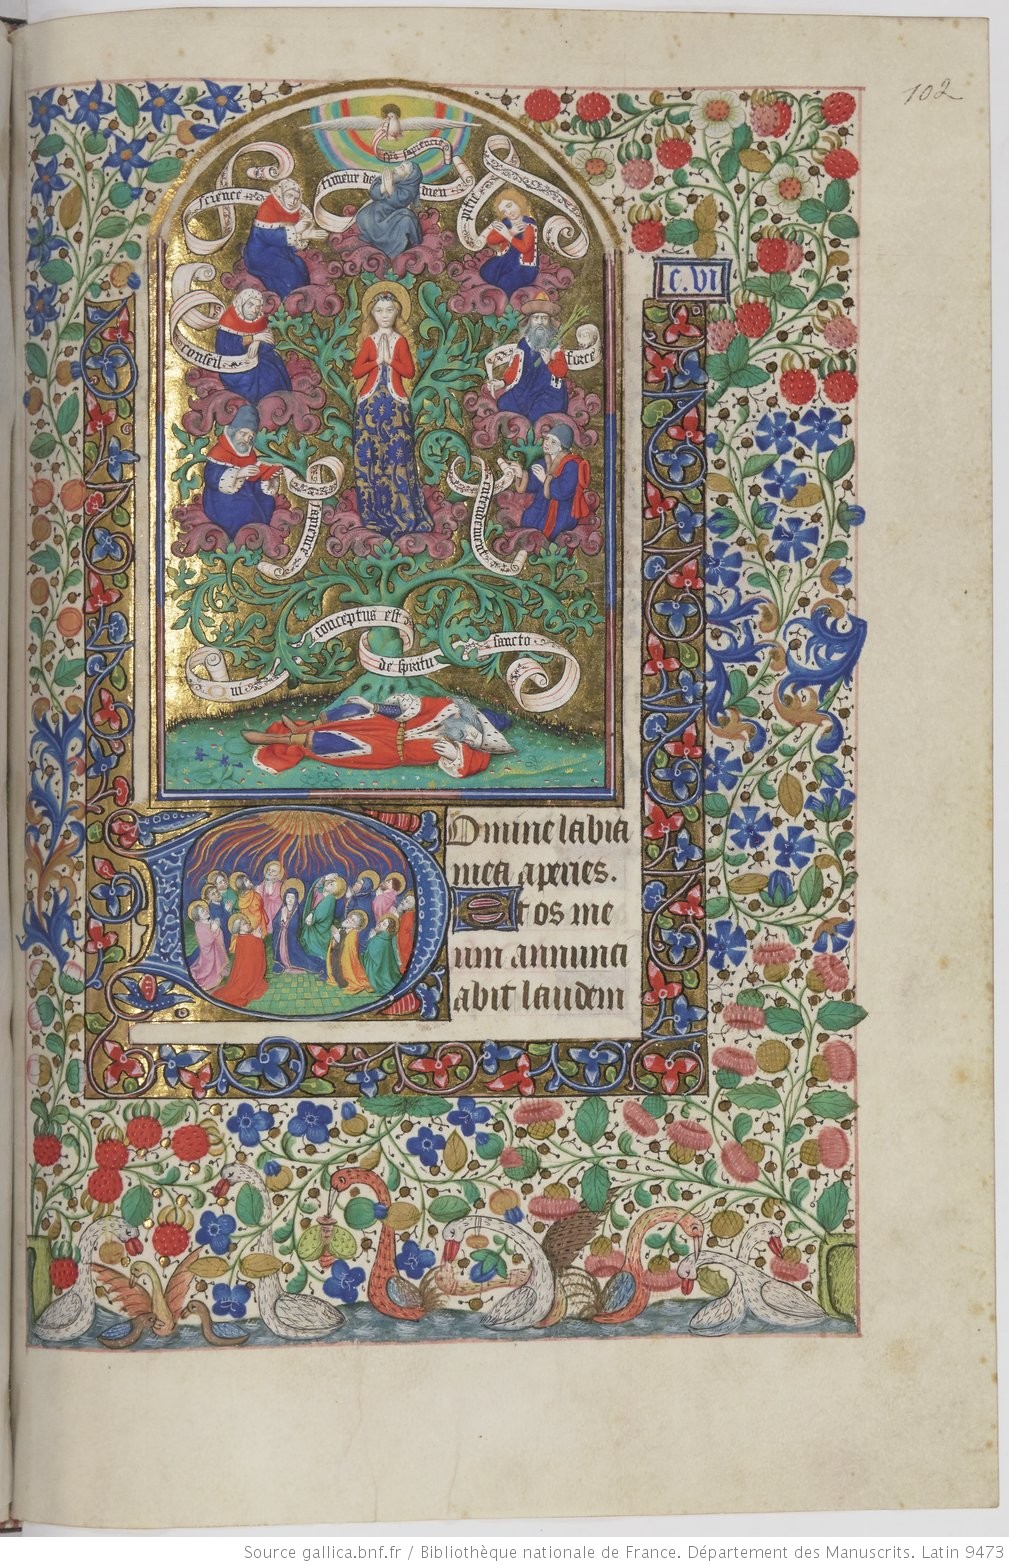 102
don sapience
timeur de dieu
science
pitie
c.vi
conseil
force
sapience
entendement
conceptus est
de spiritu
sancto
Qui
Domine labia
mea aperies.
Et os me
um annunci
abit laudem
Source gallica.bnf.fr / Bibliothèque nationale de France. Département des Manuscrits. Latin 9473